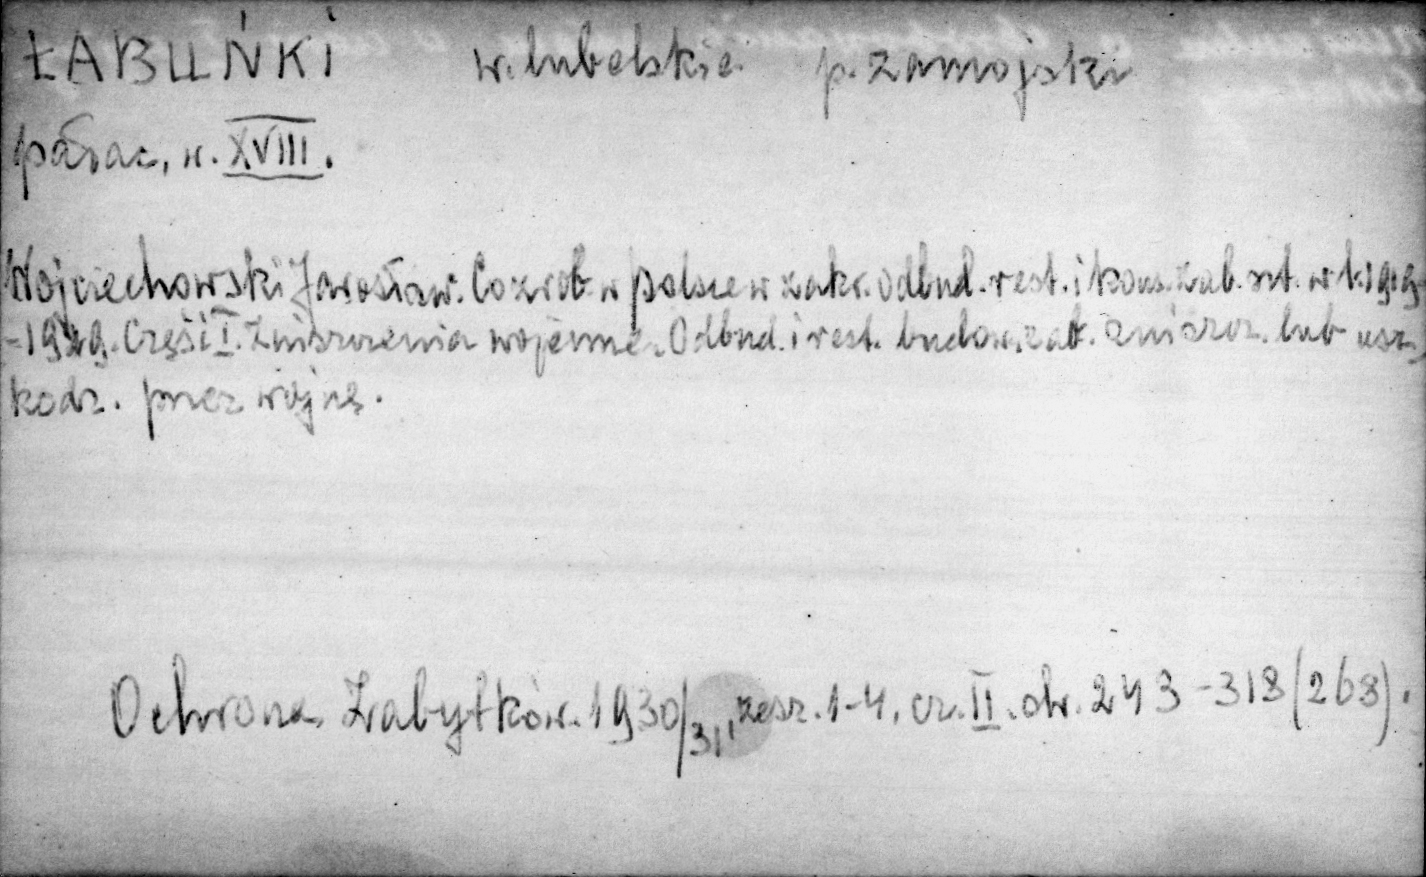 ŁABUŃKI w. lubelskie p. zamojski
pałac, w. XVIII.
Wojciechowski Jarosław. Co zrob. w Polsce w zakr. odbud. rest. i kons. zab. szt. w l. 1919
-1929. Część I. Zniszczenia wojenne. Odbud. i rest. budow. zab. zniszcz. lub usz-
kodz. przez wojnę.
Ochrona Zabytków. 1930/31, zesz. 1-4, cz. II. str. 243-318 (268).